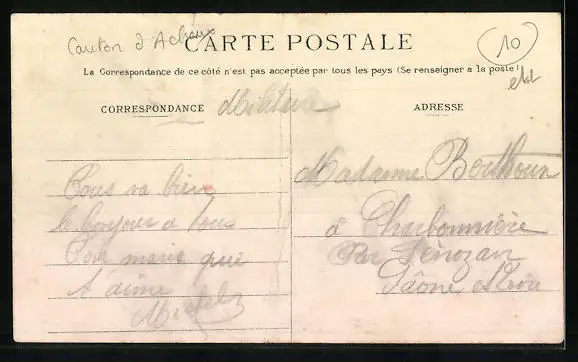 Canton d'Acheux
CARTE POSTALE
10
La Correspondance de ce côté n'est pas acceptée par tous les pays (Se renseigner à la poste)
CORRESPONDANCE Militaire
ADRESSE
Tous va bien
le bonjour a tous
Ton marie qui
t'aime
Michel
Madame Berthoux
à Charbonnière
Par Sénozan
Saône & Loire